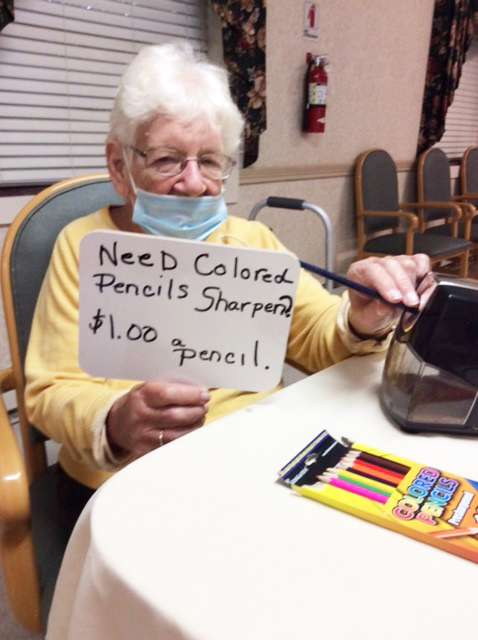 NeeD Colored
Pencils Sharpen?
$1.00 a pencil.
COLORED
PENCILS